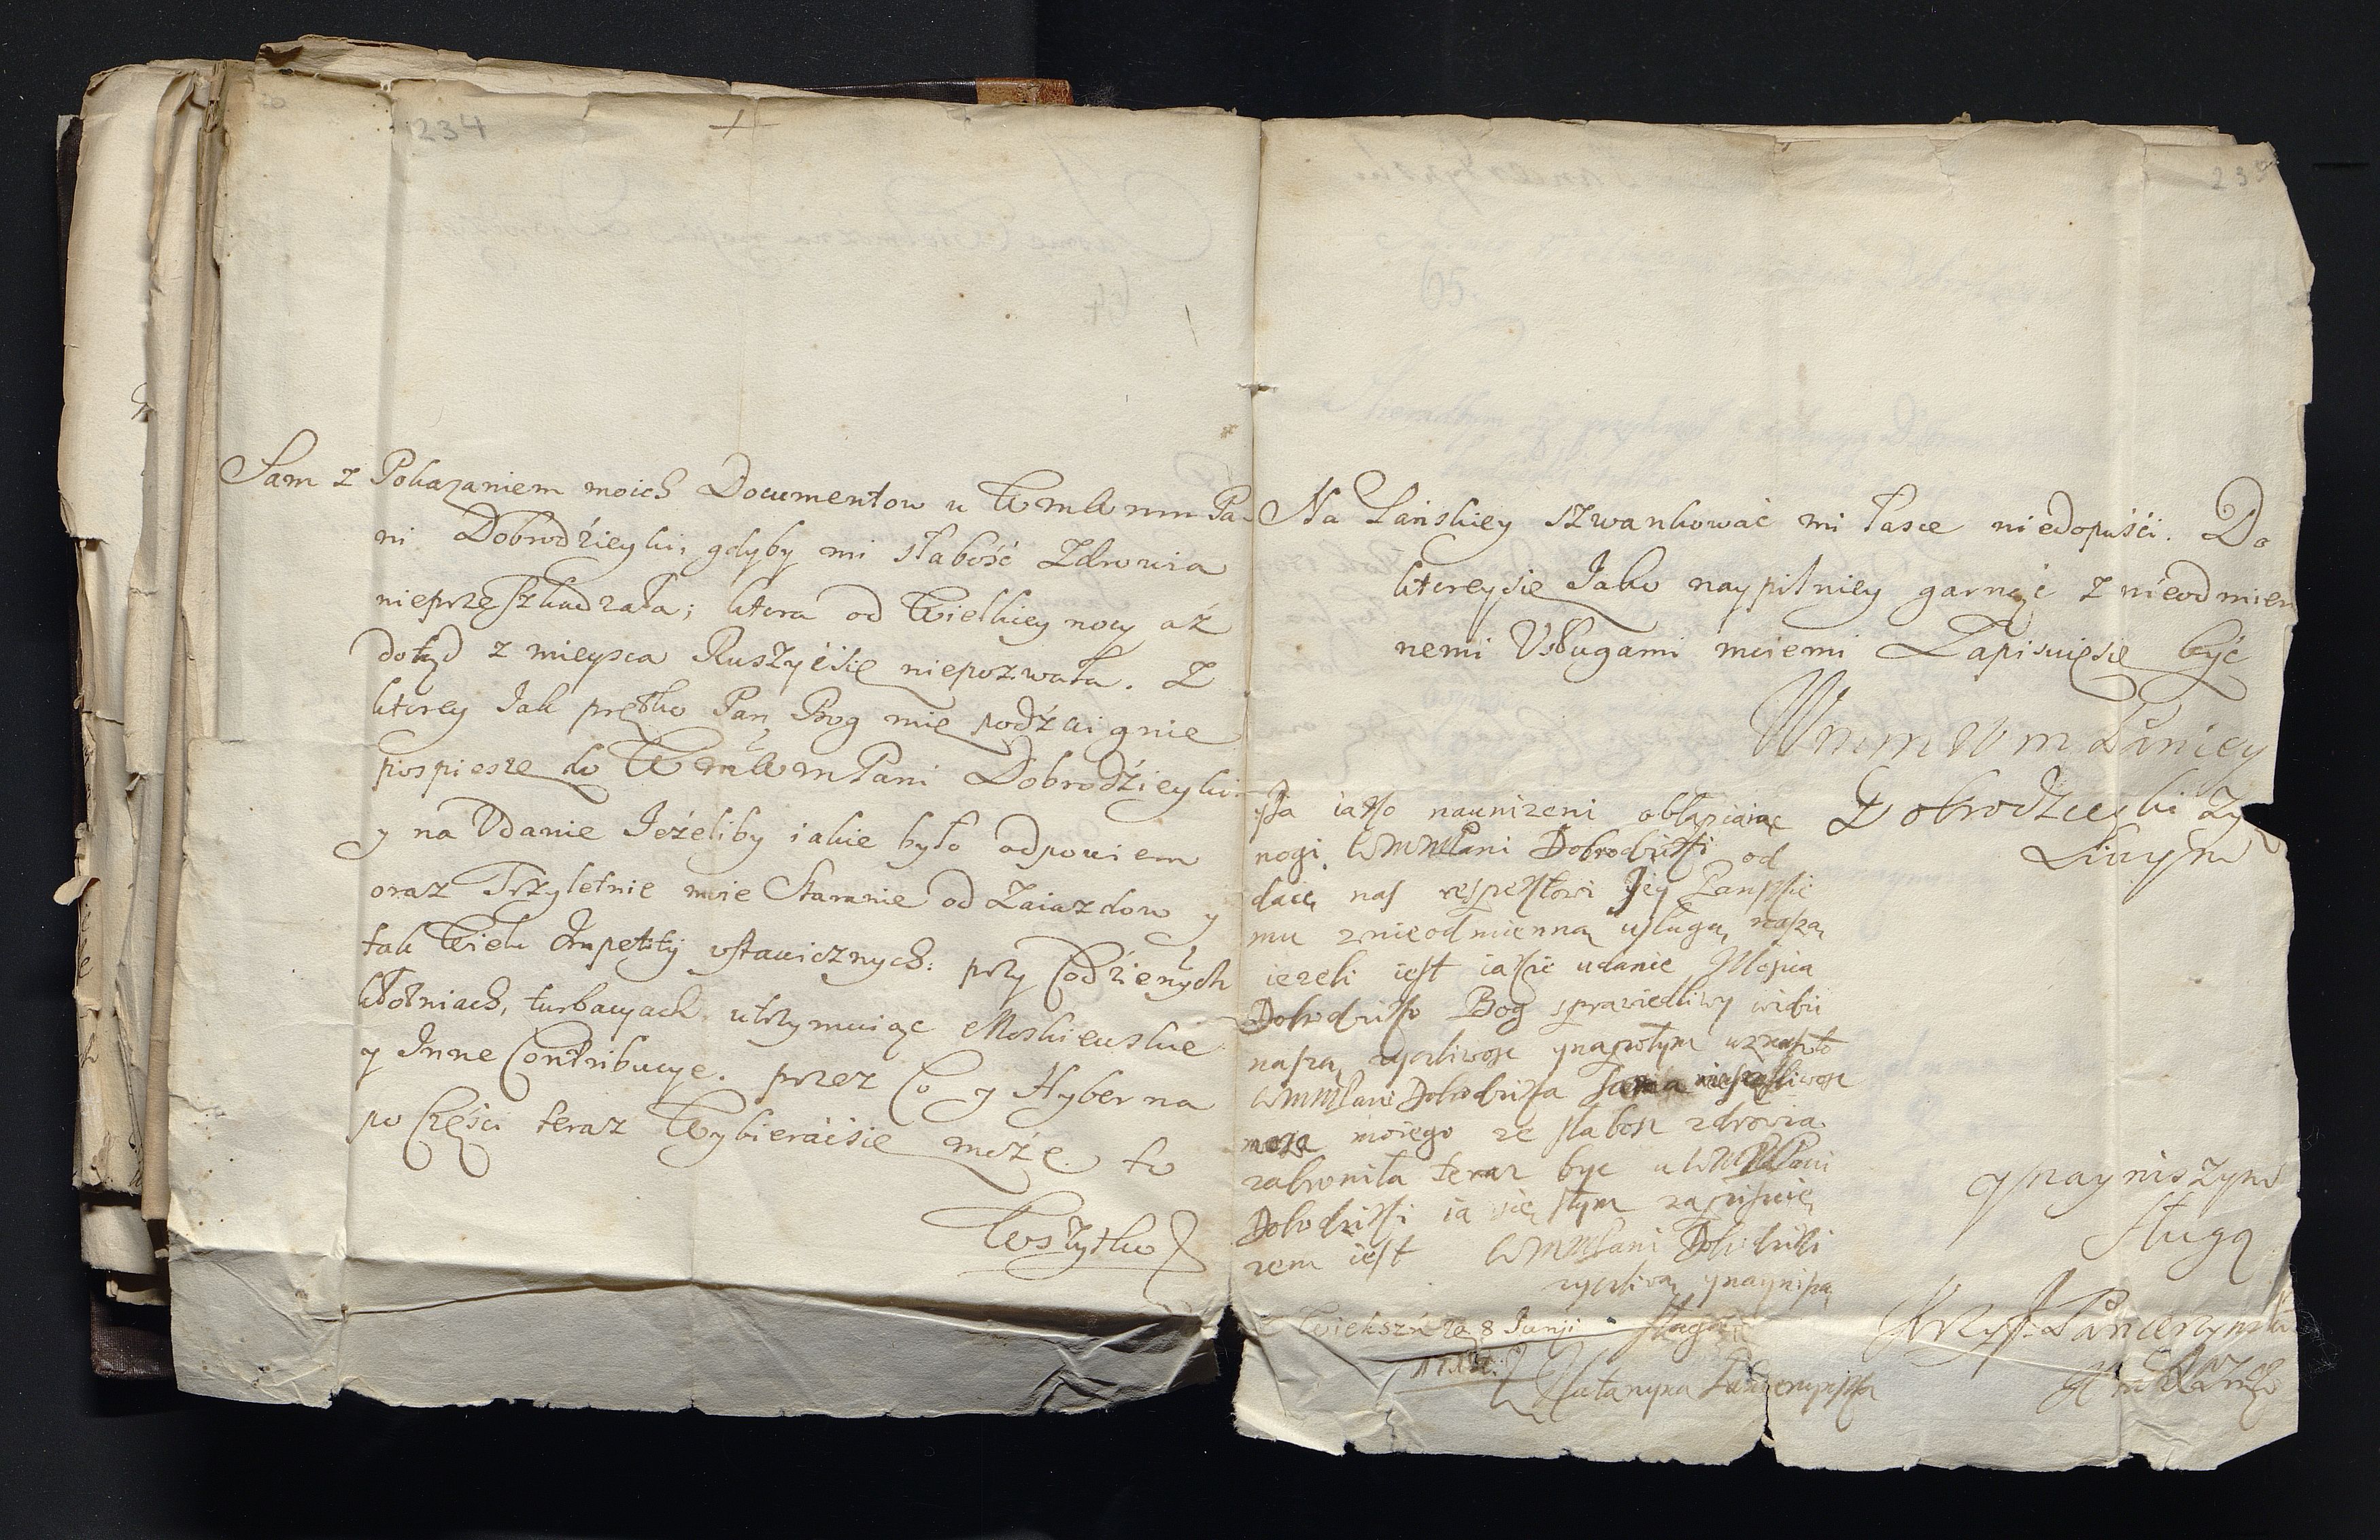 234
Sam z Pokazaniem moich Documentow u WmWmm Pa-
ni Dobrodzieyki, gdyby mi słabość Zdrowia
nieprzeszkadzała; ktora od Wielkiey nocy aż
dotyd z mieysca Ruszyćsie niepozwała. Z
ktorey Jak prętko Pan Bog mie podźwignie
pospiesze do WmWmPani Dobrodźieyki
y na Vdanie Jeżeliby iakie było odpowiem
oraz Trzyletnie moie Staranie od Zaiazdow y
tak Wielu Impetty vstawicznych: przy Codźienych
kłotniach, turbacyach utrzymuiąc Moskiewskie
y Inne Contribucye. przez Co y Hyberna
po Częśći teraz Wybieraćsie może to
Wszytko
235
Na Pańskiey szwankować mi łasce niedopuśći. Do
ktoreysie Jako naypilniey garnąć z nieodmien
nemi Vsługami moiemi Zapisuięsie być
WmmWmPaniey
Dobrodzieyki Zy
Liwym
y nayniszym
sługą
Krzysz: Pancerzynski
Ja iako naunizeni obłapiaiąc
nogi WMMPani Dobrodziki od
daię nas respektowi Jey Panskie
mu z nieodmienną usługą naszą
iezeli iest iakie udanie Moscia
Dobrodziko Bog sprawiedliwy widzi
naszą zycliwosc
WMMPani Dobrodzika
męza moiego ze słabosc zdrowia
zabroniła teraz byc u WMMPani
Dobodziki ia się stym zapisuię
zem iest WMMPani Dobrodziki
zycliwą y nayniszą
sługą
8 Junji
Katarzyna Pancerzynska